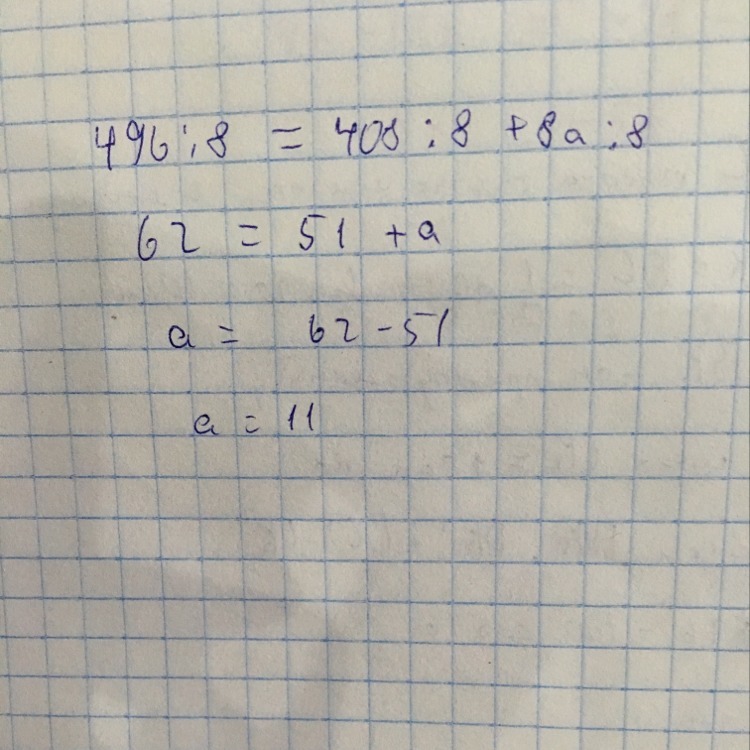 496 : 8 = 408 : 8 + 8a : 8
62 = 51 + a
a = 62 - 51
a = 11